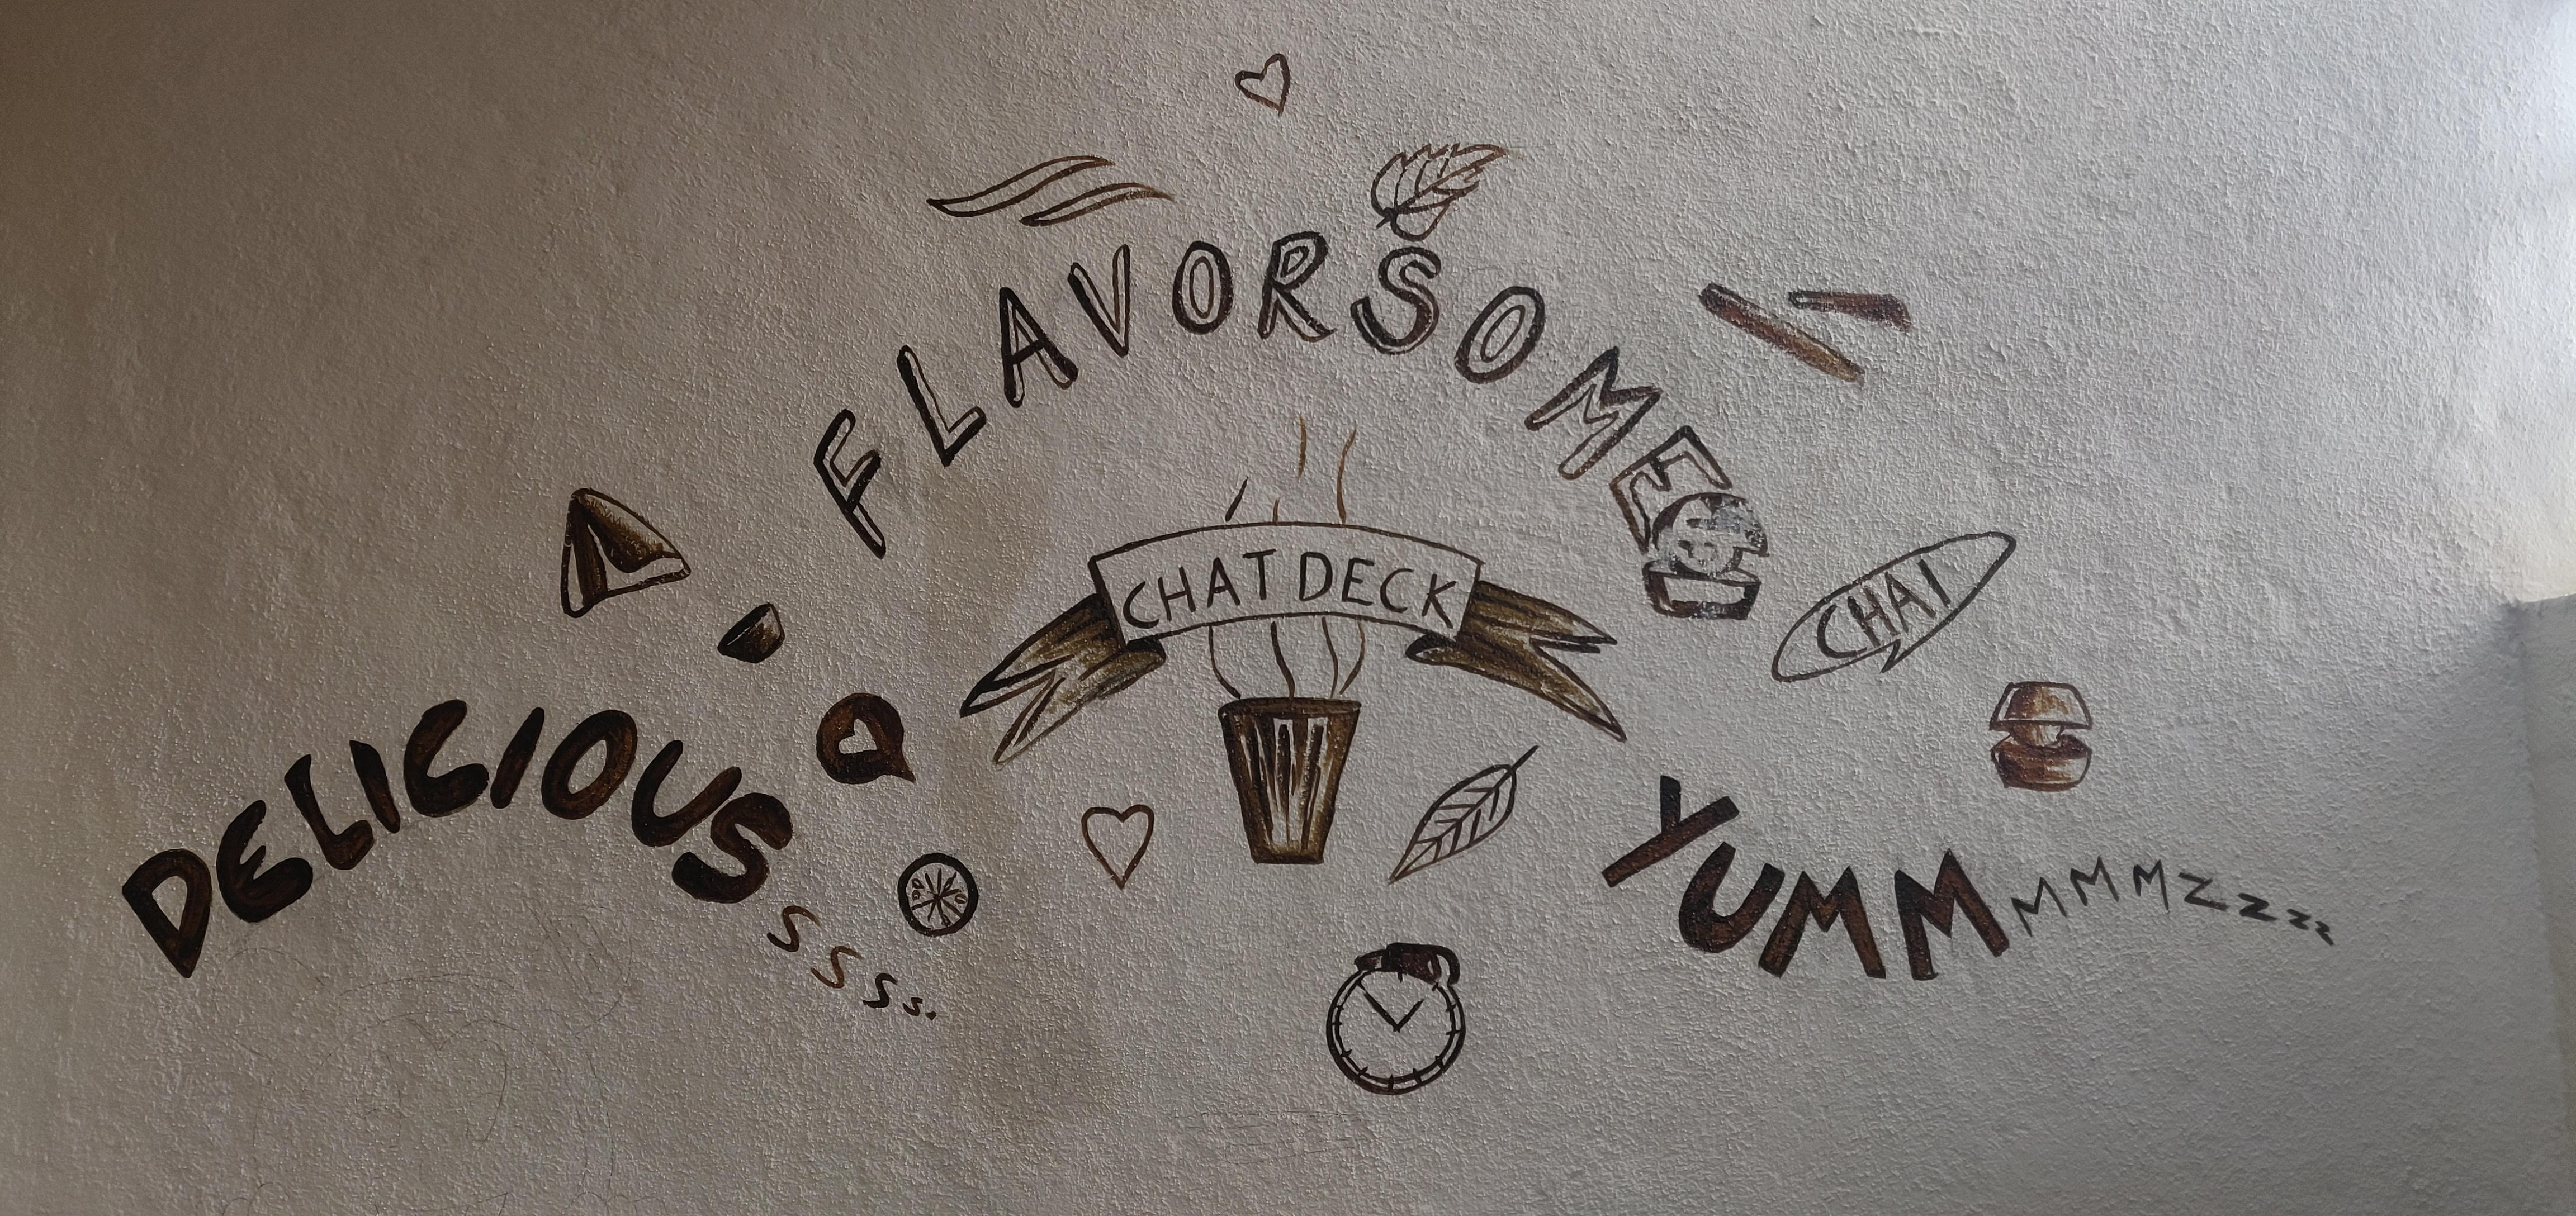 FLAVORSOME
CHAT DECK
CHAI
DELICIOUSssss.
YUMMMMMzzzz